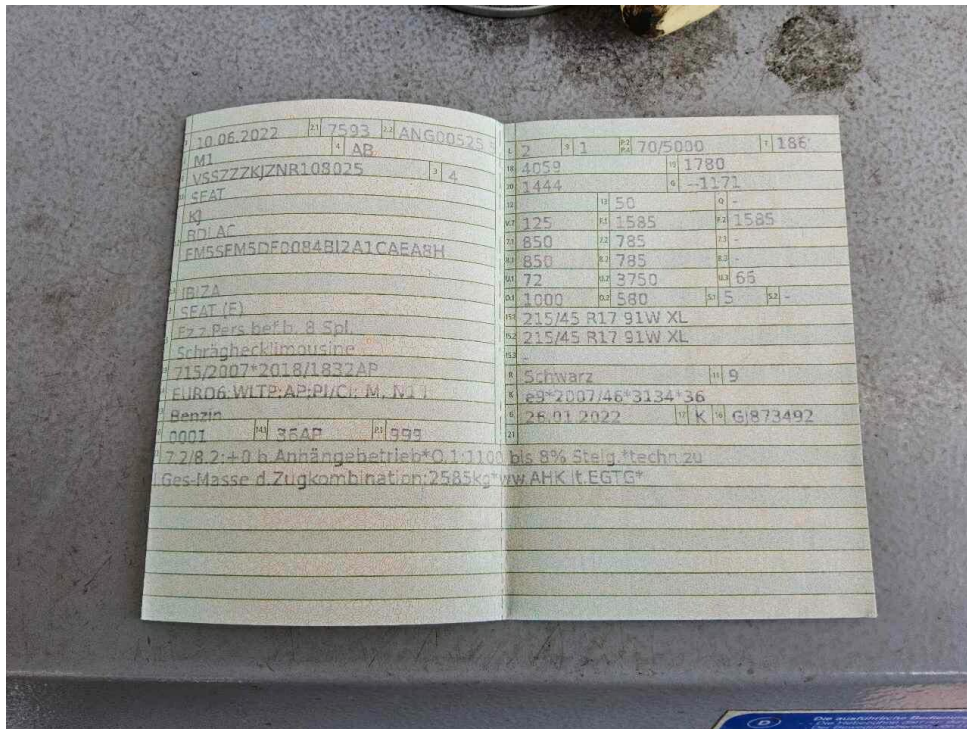 10.06.2022 2.1 7593 2.2 ANG00525
M1 4 AB
VSSZZZKJZNR108025 3 4
SEAT
KJ
BDLAC
FM5SFM5DF0084BI2A1CAEA8H
IBIZA
SEAT (E)
Fz.z.Pers.bef.b. 8 Spl.
Schräghecklimousine
715/2007*2018/1832AP
EURO6;WLTP;AP;PI/CI; M, N1 I
Benzin
0001 14.1 36AP P.1 999
7.2/8.2:+0 b.Anhängebetrieb*O.1:1100 bis 8% Steig.*techn.zu
l.Ges-Masse d.Zugkombination:2585kg*ww.AHK lt.EGTG*
L 2 9 1 P.2 P.4 70/5000 T 186
18 4059 19 1780
20 1444 G --1171
12 13 50 Q -
V.7 125 F.1 1585 F.2 1585
7.1 850 7.2 785 7.3 -
8.1 850 8.2 785 8.3 -
U.1 72 U.2 3750 U.3 66
O.1 1000 O.2 580 S.1 5 S.2 -
15.1 215/45 R17 91W XL
15.2 215/45 R17 91W XL
15.3 -
R Schwarz 11 9
K e9*2007/46*3134*36
6 26.01.2022 17 K 16 GJ873492
21
D Die ausführliche Bedienung